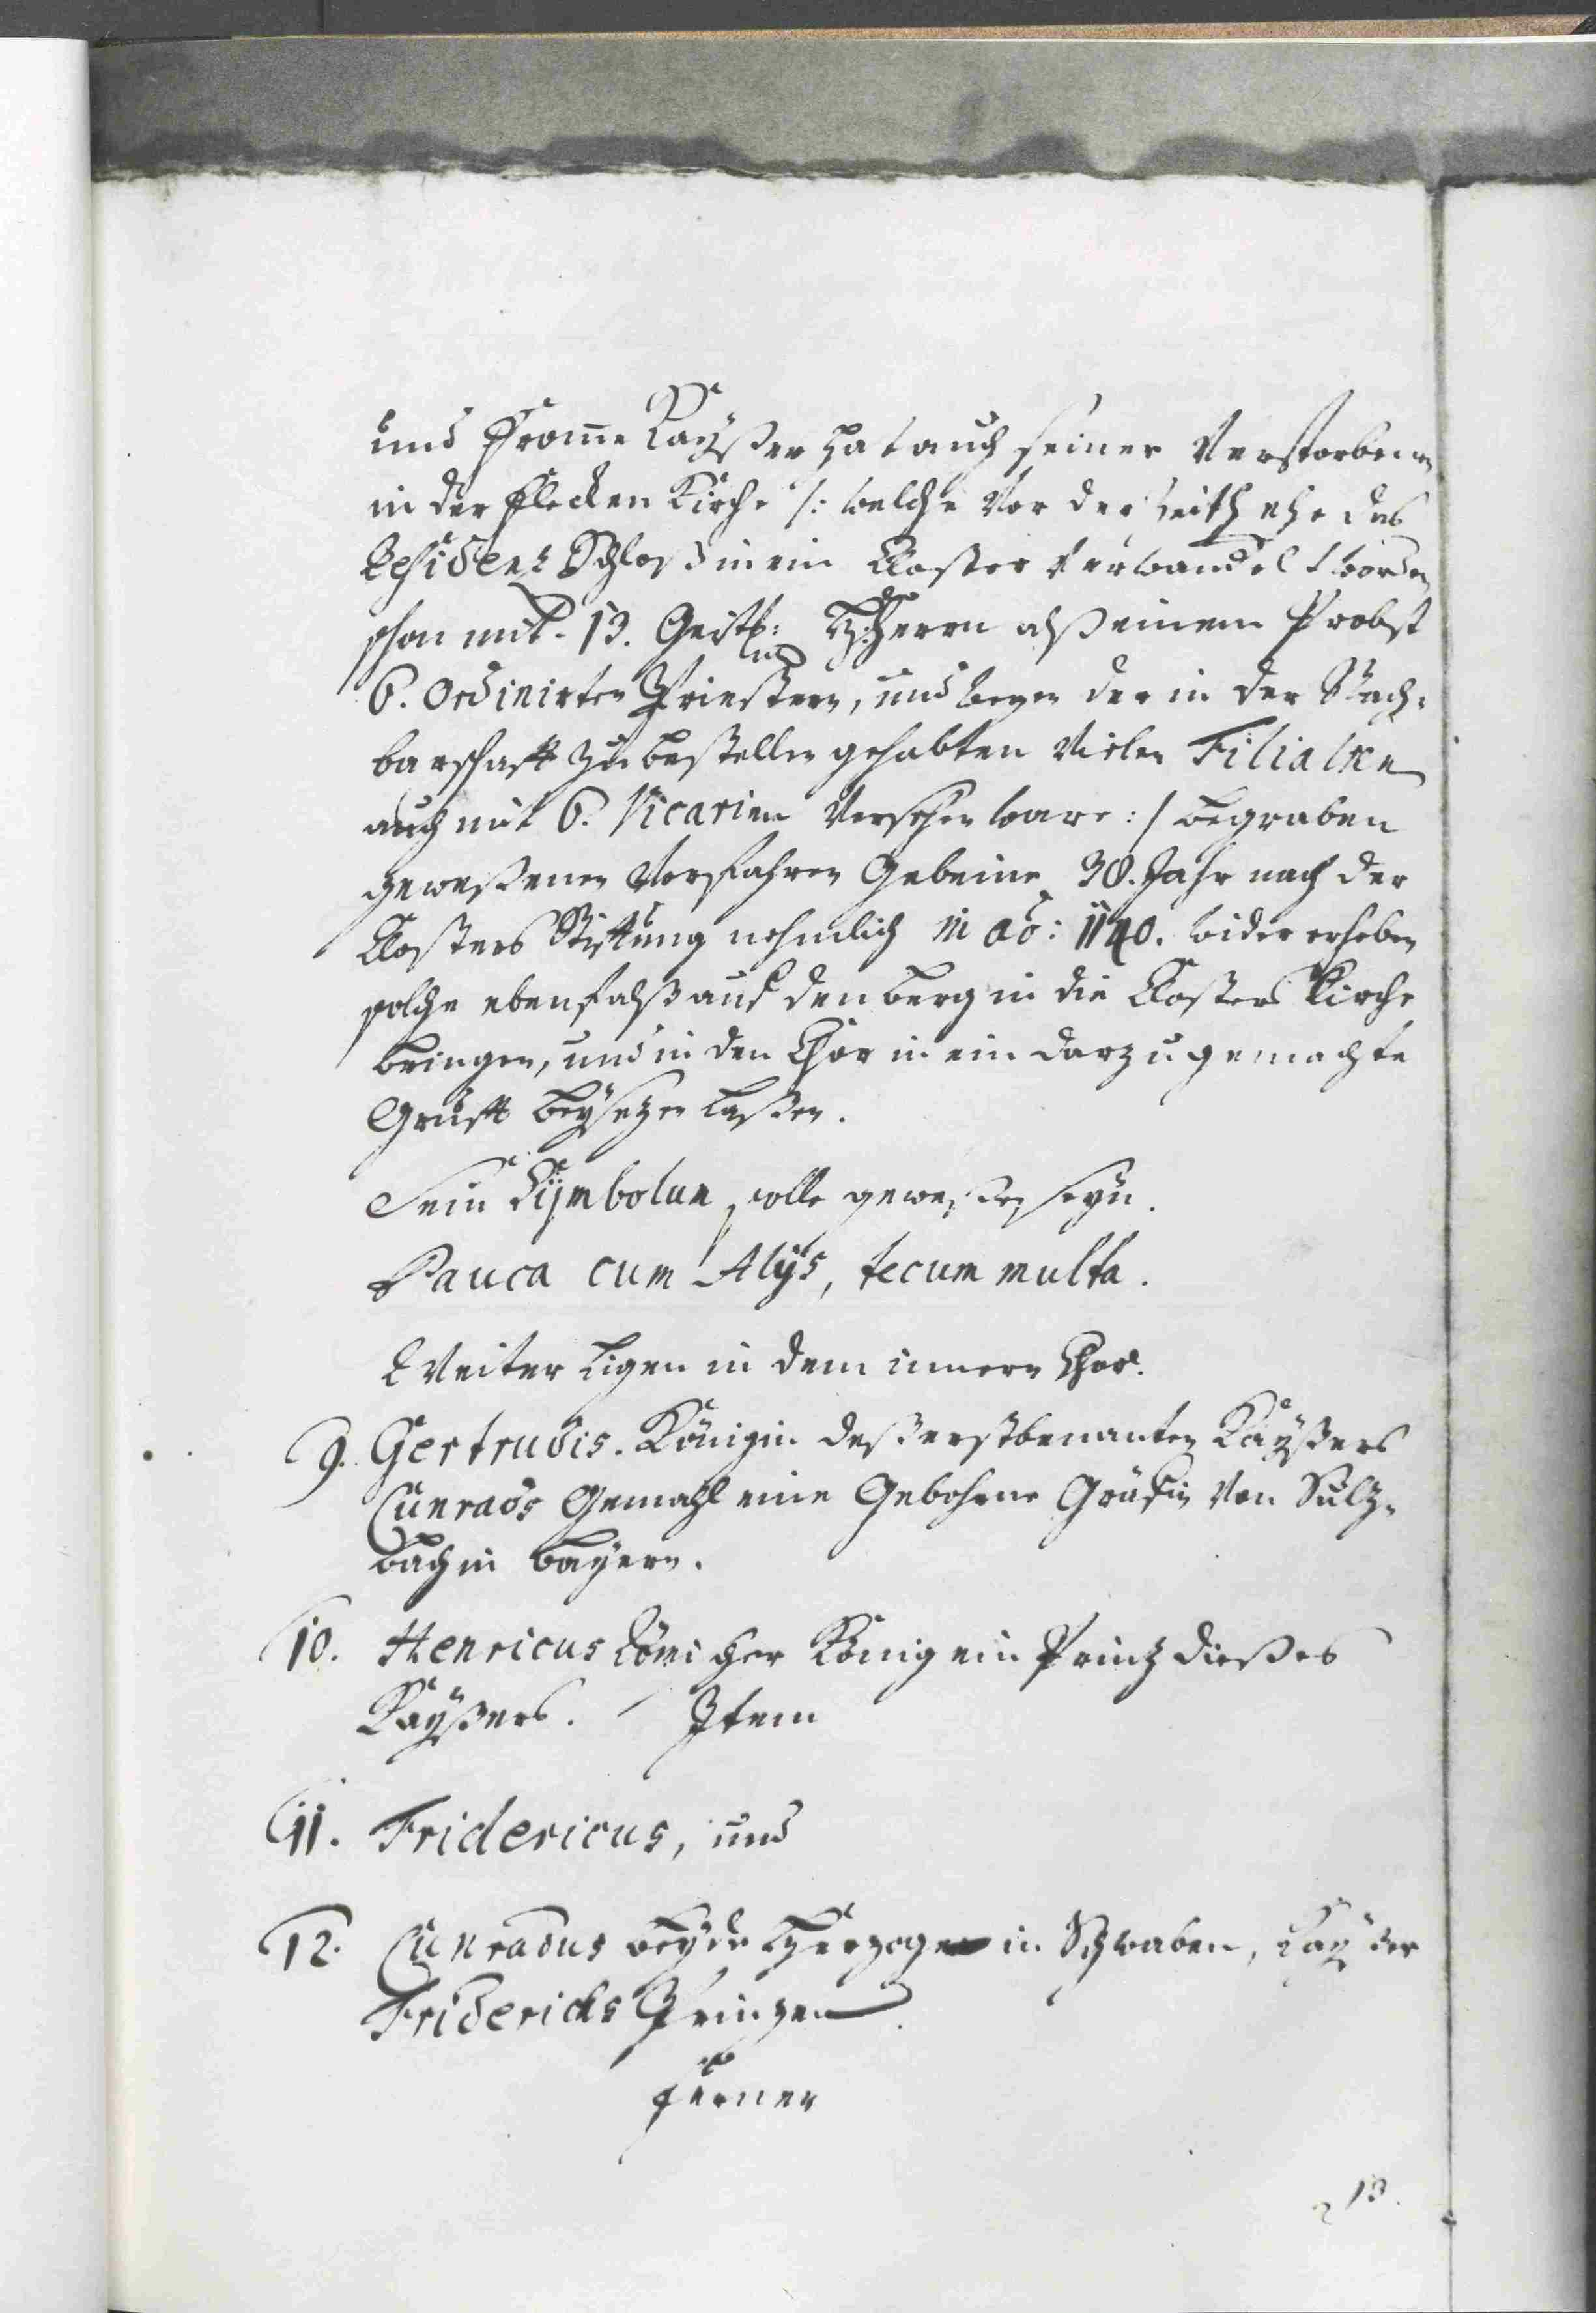 und fromme Kayßer hat auch seiner Verstorbenen
in der Flecken Kirche /: welche Vor der Zeith ehe das
Residenz Schloß in ein Closter Verwandelt worden
schon mit 13. Geistl: Herrn alß einem Probst
6. ordinirten Priestern, und wegen der in der Nach-
barschafft zu bestellen gehabten Vielen Filialen
auch mit 6. Vicarien Versehen ware :/ begraben
geweßenen Vorfahren Gebeine 38. Jahr nach der
Closters Stifftung nehmlich in ao: 1140. wider erheben
solche ebenfalß auf den berg in die Closters Kirche
bringen, und in den Chor in ein darzu gemachte
Grufft beysezen laßen.
Sein Symbolum solle geweßen seyn.
Pauca cum Alijs, tecum multa.
Weiter ligen in dem innern Chor.
9. Gertrudis. Königin deß erstbenanten Kayßers
Cunrads Gemahl eine Gebohrne Gräfin Von Sulz-
bach in Bayern.
10. Henricus Römischer König ein Prinz dießes
Kayßers. Item
11. Fridericus, und
12. Cunradus beyde Herzogen in Schwaben, Kayßer
Friderichs Prinzen
ferner
13.